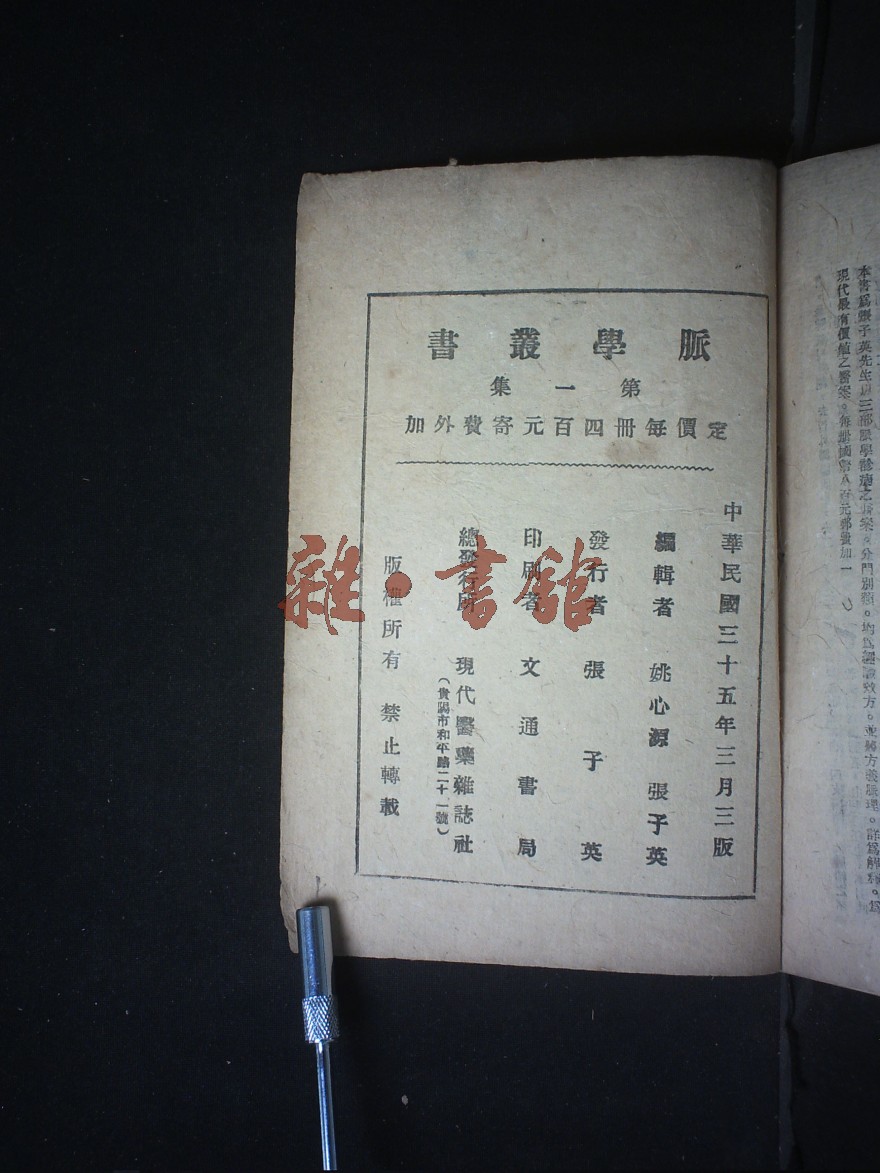 本書為張子英先生以三部脈學診病之醫案。分門別類。均為經驗效方。並將方義脈理。詳為解釋。為
現代最有價值之醫案。每冊國幣八百元郵費加一
脈學叢書
第一集
定價每冊四百元寄費外加
中華民國三十五年三月三版
編輯者 姚心源 張子英
發行者 張子英
印刷者 文通書局
總發行所 現代醫藥雜誌社
(貴陽市和平路二十一號)
版權所有 禁止轉載
雜·書館